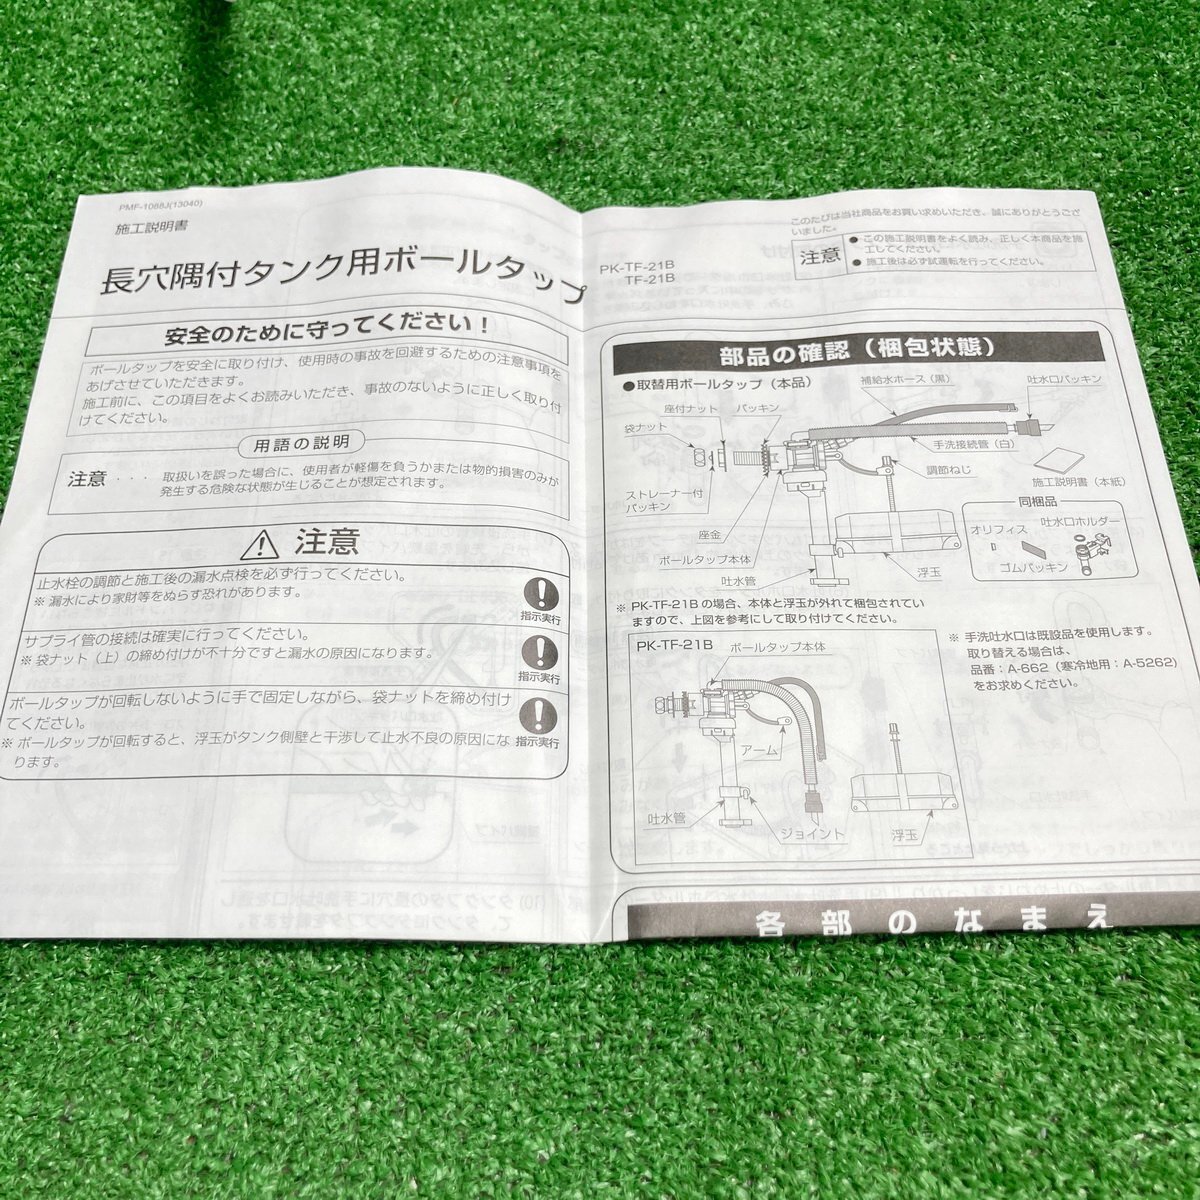 PMF-1068J(13040)
施工説明書
長穴隅付タンク用ボールタップ
PK-TF-21B
TF-21B
安全のために守ってください！
ボールタップを安全に取り付け、使用時の事故を回避するための注意事項を
あげさせていただきます。
施工前に、この項目をよくお読みいただき、事故のないように正しく取り付
けてください。
用語の説明
注意 ・・・ 取扱いを誤った場合に、使用者が軽傷を負うかまたは物的損害のみが
発生する危険な状態が生じることが想定されます。
注意
止水栓の調節と施工後の漏水点検を必ず行ってください。
※ 漏水により家財等をぬらす恐れがあります。
指示実行
サプライ管の接続は確実に行ってください。
※ 袋ナット（上）の締め付けが不十分ですと漏水の原因になります。
指示実行
ボールタップが回転しないように手で固定しながら、袋ナットを締め付け
てください。
※ ボールタップが回転すると、浮玉がタンク側壁と干渉して止水不良の原因にな
ります。
指示実行
このたびは当社商品をお買い求めいただき、誠にありがとうござ
いました。
注意
● この施工説明書をよく読み、正しく本商品を施
工してください。
● 施工後は必ず試運転を行ってください。
部品の確認（梱包状態）
●取替用ボールタップ（本品）
補給水ホース（黒）
吐水口パッキン
座付ナット
パッキン
袋ナット
手洗接続管（白）
調節ねじ
施工説明書（本紙）
ストレーナー付
パッキン
座金
ボールタップ本体
吐水管
浮玉
同梱品
オリフィス
吐水口ホルダー
ゴムパッキン
※ PK-TF-21Bの場合、本体と浮玉が外れて梱包されてい
ますので、上図を参考にして取り付けてください。
PK-TF-21B
ボールタップ本体
アーム
吐水管
ジョイント
浮玉
※ 手洗吐水口は既設品を使用します。
取り替える場合は、
品番：A-662（寒冷地用：A-5262）
をお求めください。
各部のなまえ